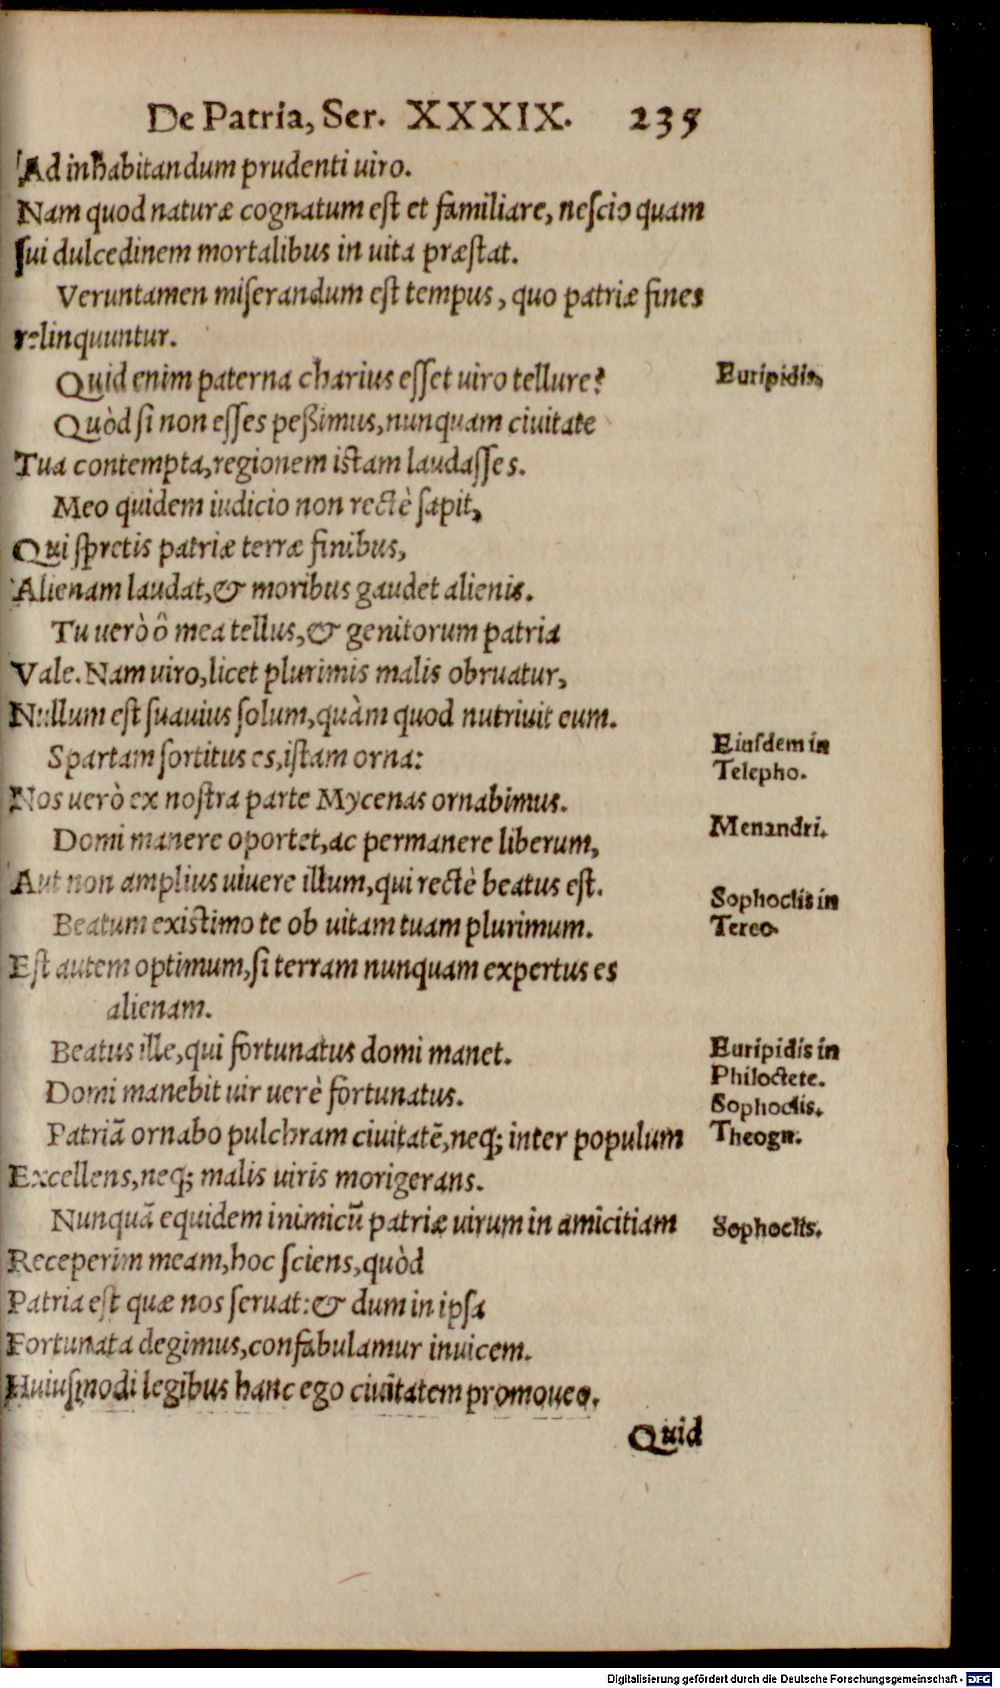 De Patria, Ser. XXXIX. 235
Ad inhabitandum prudenti uiro.
Nam quod naturæ cognatum est et familiare, nescio quam
sui dulcedinem mortalibus in uita præstat.
Veruntamen miserandum est tempus, quo patriæ fines
relinquuntur.
Quid enim paterna charius esset uiro tellure? Euripidis,
Quòd si non esses peßimus, nunquam ciuitate
Tua contempta, regionem istam laudasses.
Meo quidem iudicio non rectè sapit,
Qui spretis patriæ terræ finibus,
Alienam laudat, & moribus gaudet alienis.
Tu uerò ô mea tellus, & genitorum patria
Vale. Nam uiro, licet plurimis malis obruatur,
Nullum est suauius solum, quàm quod nutriuit eum.
Spartam sortitus es, istam orna: Eiusdem in
Telepho.
Nos uerò ex nostra parte Mycenas ornabimus.
Domi manere oportet, ac permanere liberum, Menandri.
Aut non amplius uiuere illum, qui rectè beatus est.
Beatum existimo te ob uitam tuam plurimum. Sophoclis in
Tereo.
Est autem optimum, si terram nunquam expertus es
alienam.
Beatus ille, qui fortunatus domi manet. Euripidis in
Philoctete.
Domi manebit uir uerè fortunatus. Sophoclis.
Patriã ornabo pulchram ciuitatẽ, neq; inter populum Theogn.
Excellens, neq; malis uiris morigerans.
Nunquã equidem inimicũ patriæ uirum in amicitiam Sophoclis.
Receperim meam, hoc sciens, quòd
Patria est quæ nos seruat: & dum in ipsa
Fortunata degimus, confabulamur inuicem.
Huiusmodi legibus hanc ego ciuitatem promoueo.
Quid
Digitalisierung gefördert durch die Deutsche Forschungsgemeinschaft - DFG